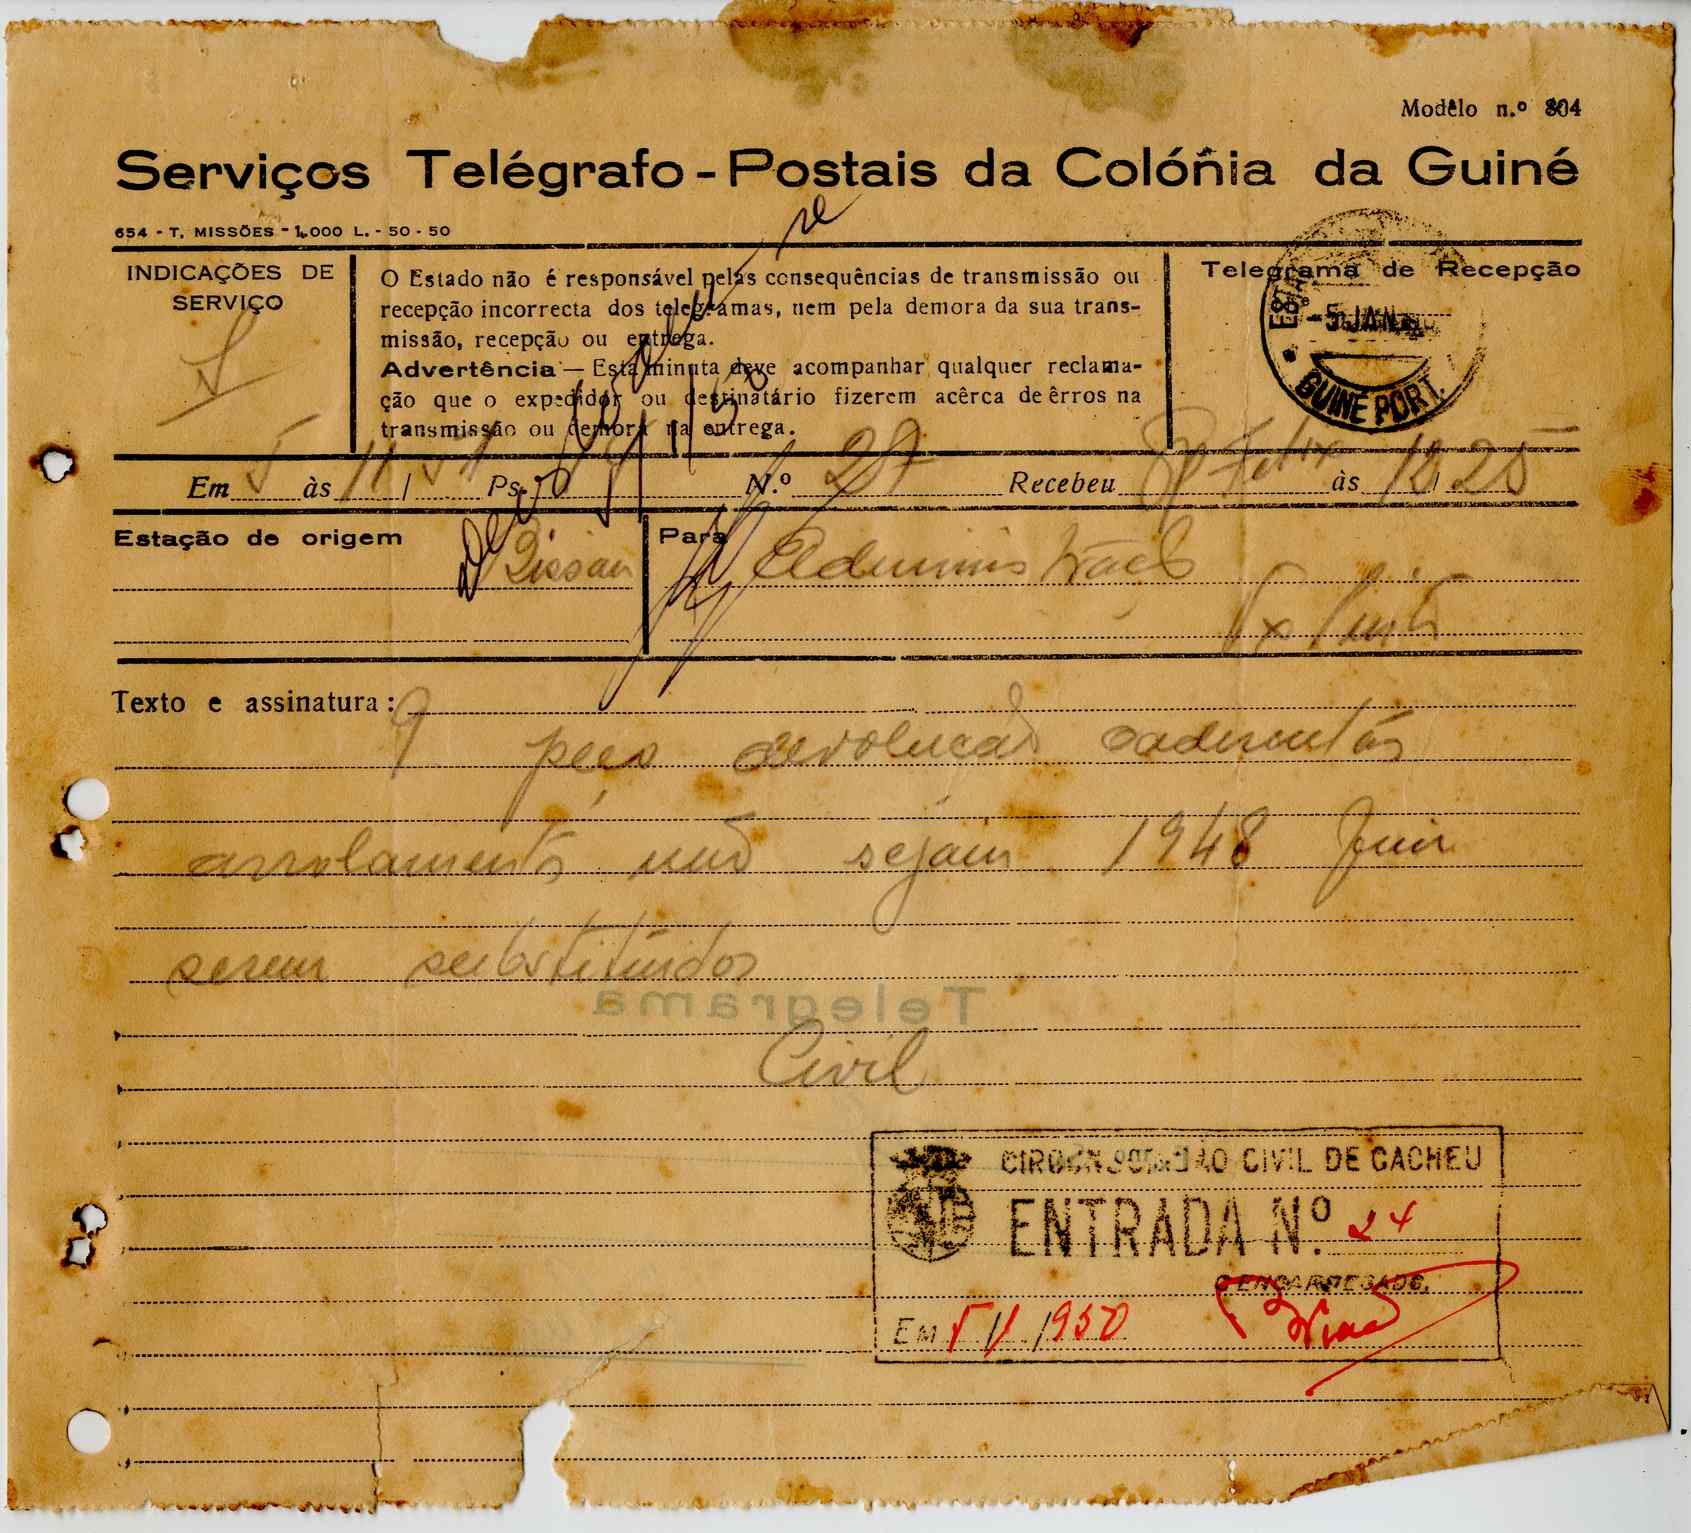 Modêlo n.º 804
Serviços Telégrafo-Postais da Colónia da Guiné
654 - T. MISSÕES - 1.000 L. - 50 - 50
INDICAÇÕES DE SERVIÇO
S
O Estado não é responsável pelas consequências de transmissão ou
recepção incorrecta dos telegramas, nem pela demora da sua trans-
missão, recepção ou entrega.
Advertência — Esta minuta deve acompanhar qualquer reclama-
ção que o expedidor ou destinatário fizerem acêrca de êrros na
transmissão ou demora na entrega.
Telegrama de Recepção
-5 JAN.
GUINÉ PORT.
Em 5 às 11/51 Ps. 14 N.º 27 Recebeu às 12/25
Estação de origem Bissau
Para Administração
Texto e assinatura:
9 peço devolução cadernetas
arrolamento não sejam 1948 fim
serem substituidos
Telegrama
Civil
CIRCUNSCRIÇÃO CIVIL DE CACHEU
ENTRADA N.º 24
O ENCARREGADO,
EM 5/1/1950